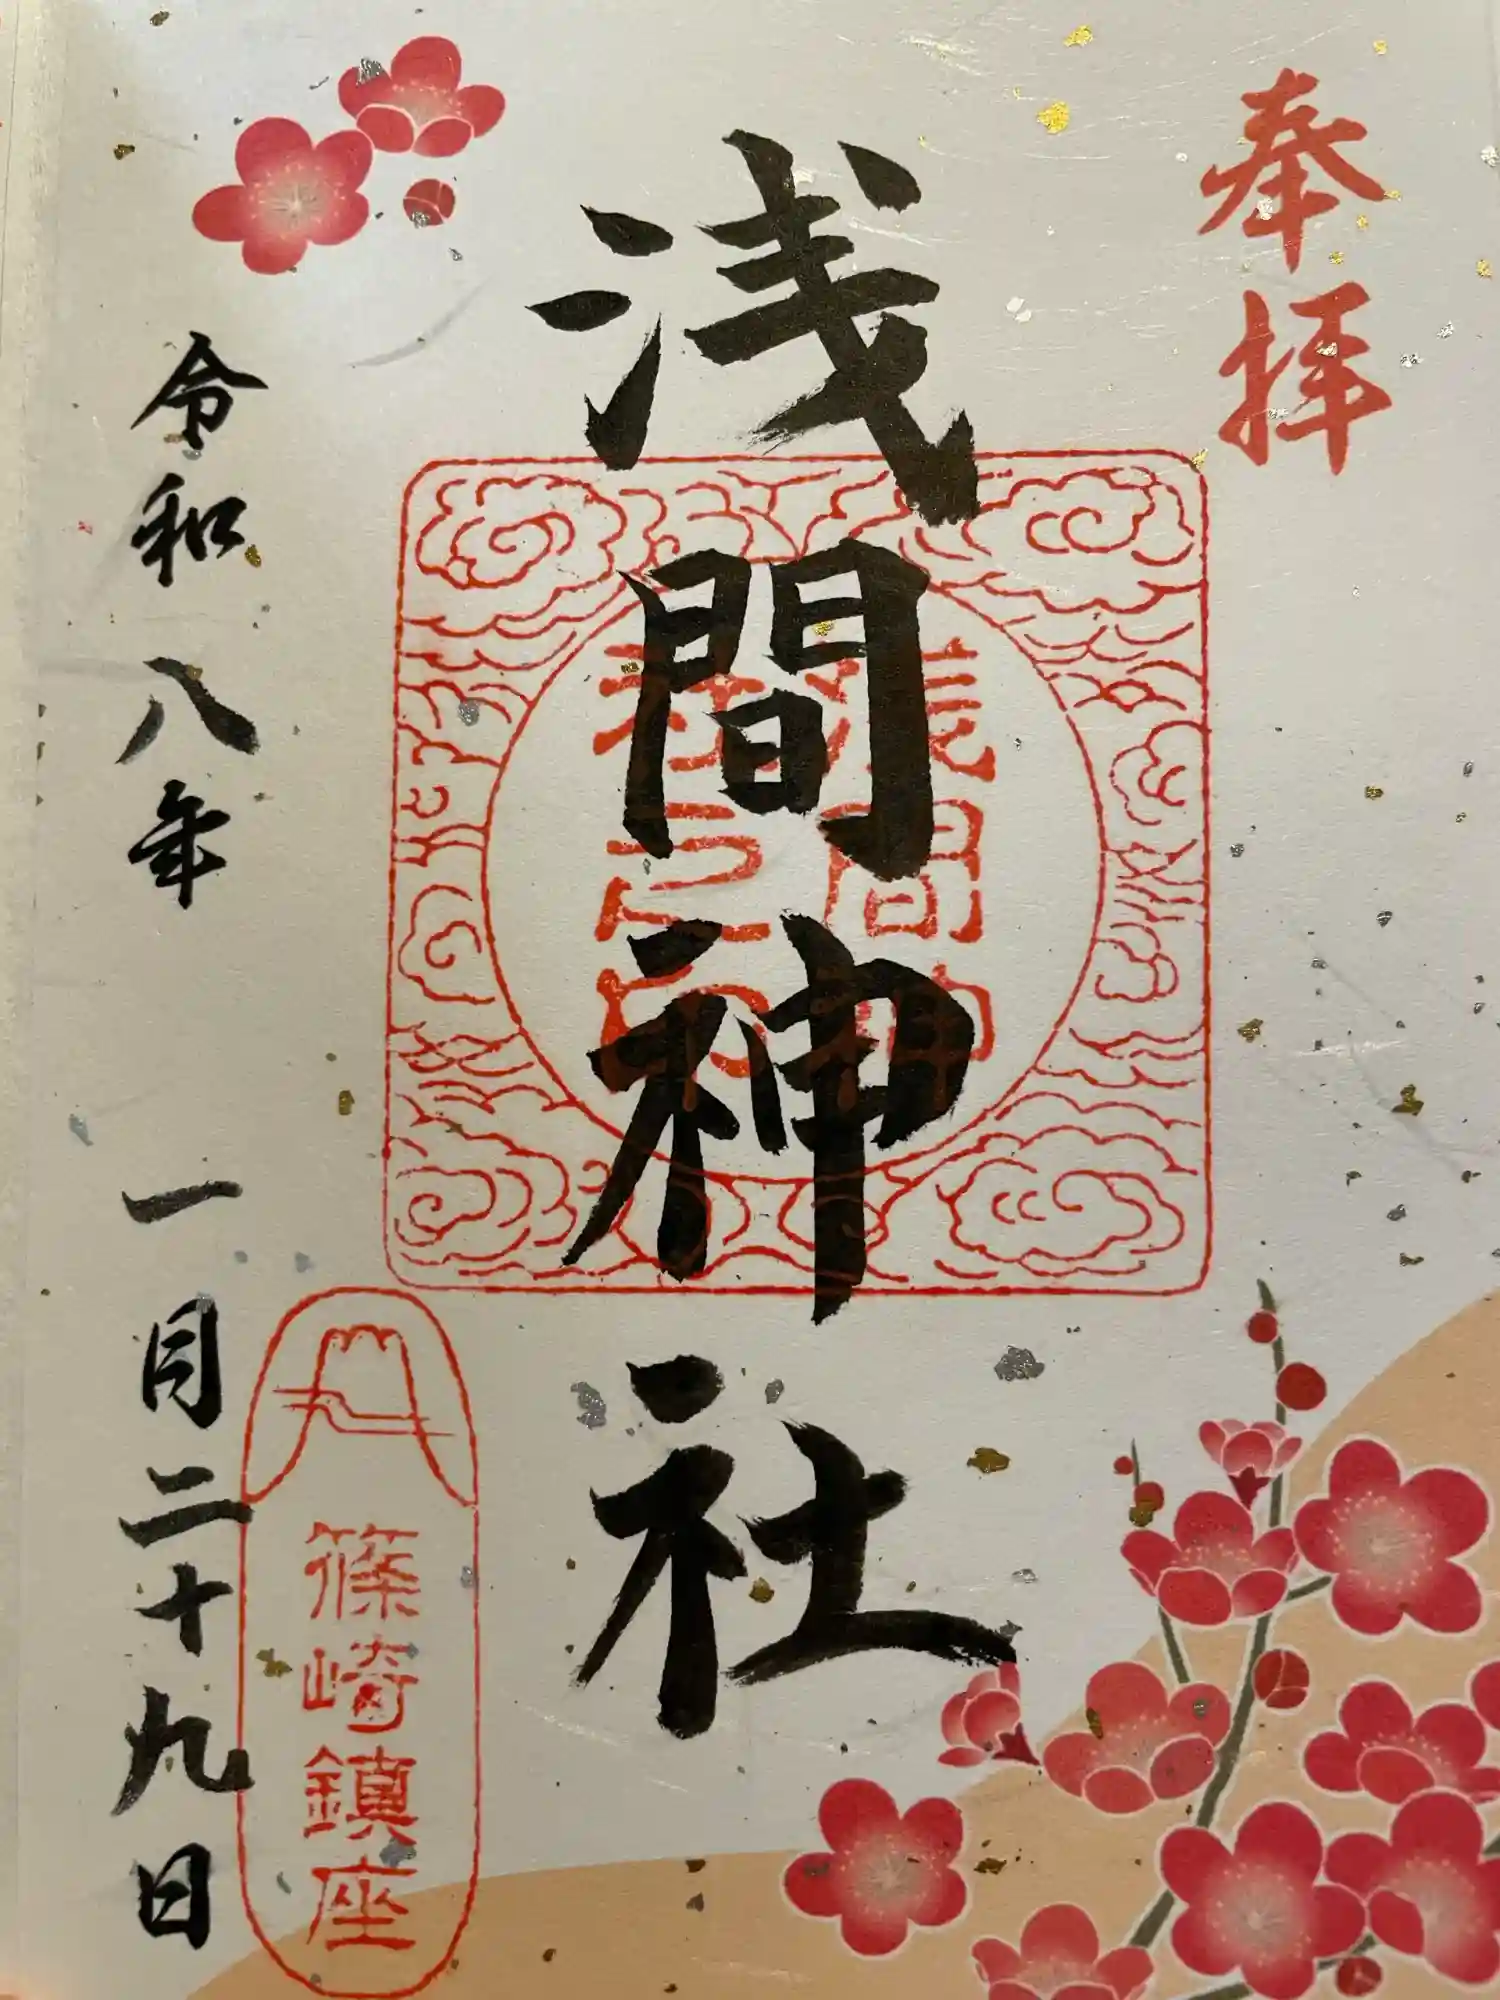 奉拝
浅間神社
浅間神
社之印
篠崎鎮座
令和八年 一月二十九日